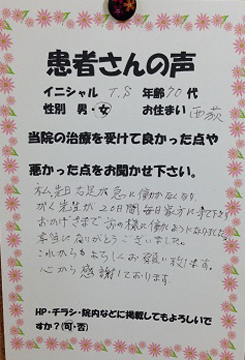 患者さんの声
イニシャル T.S 年齢 70 代
性別 男・女 お住まい 西荻
当院の治療を受けて良かった点や
悪かった点をお聞かせ下さい。
私、先日右足が急に働かなくなり
がく先生が20日間毎日家方に来て下さり
おかげさまで前の様に働くようになりました
本当にありがとうございました。
これからもよろしくお願い致します。
心から感謝しております。
HP・チラシ・院内などに掲載してもよろしいで
すか?(可・否)